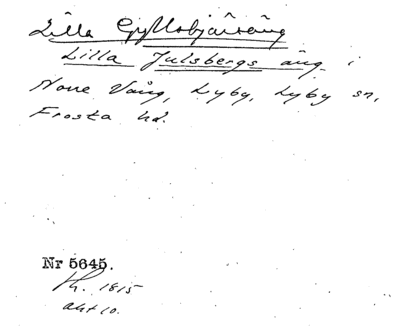 Lilla Gyllobjärsäng
Lilla Julsbergs äng i
Norre Vång, Lyby, Lyby sn,
Frosta hd.
Nr 5645.
1815
akt 10.